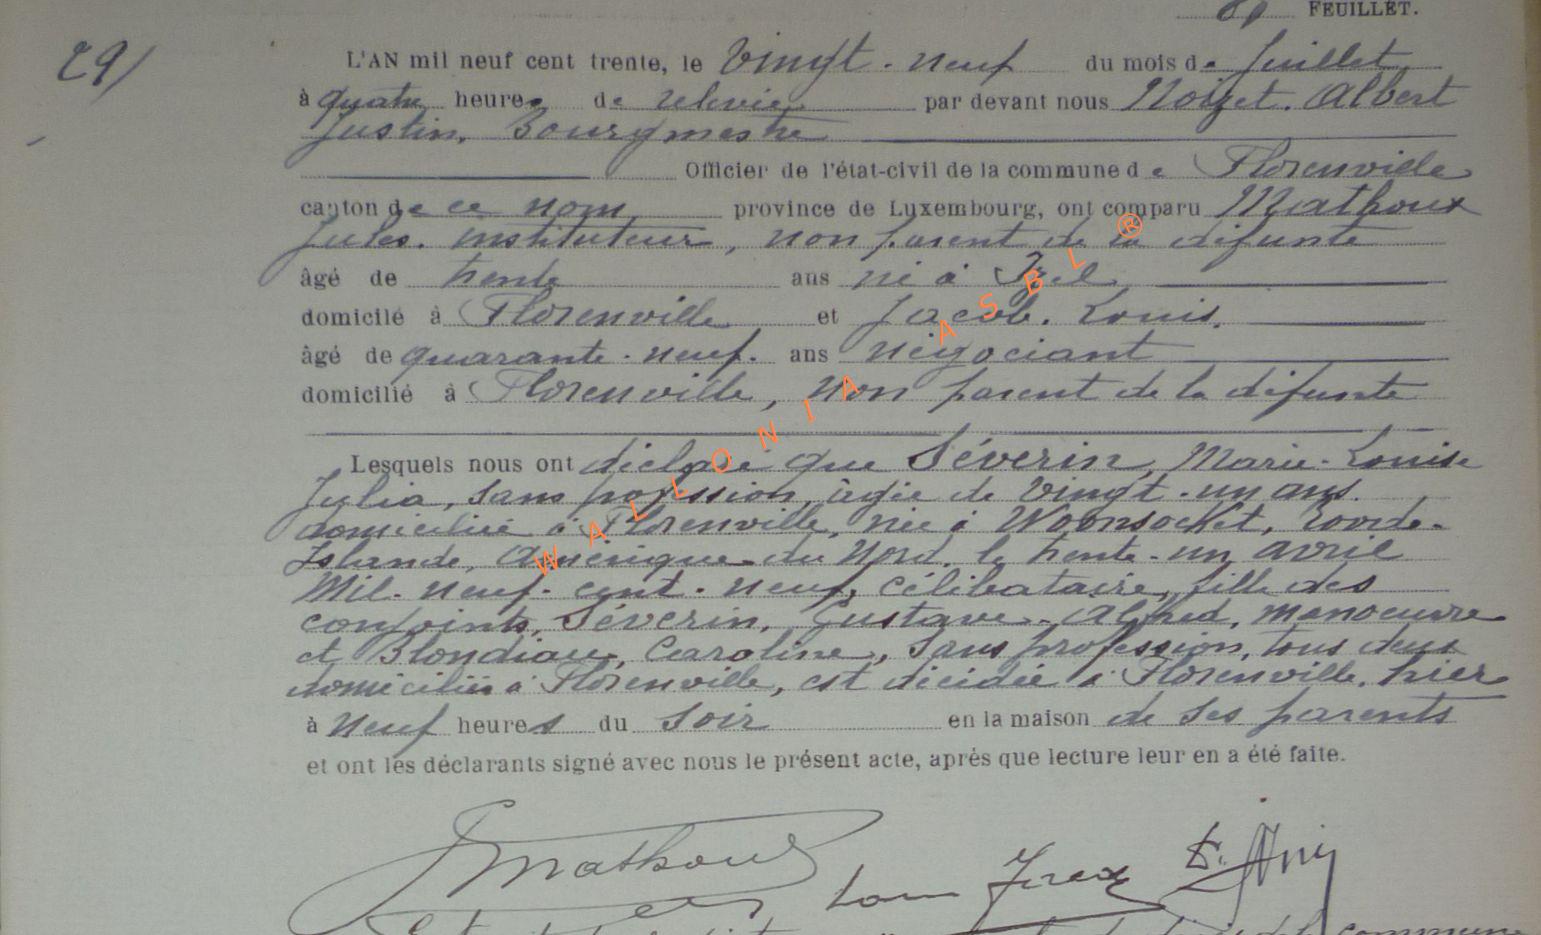 FEUILLET.
29/
L'AN mil neuf cent trente, le Vingt-neuf du mois de Juillet
à quatre heures de relevée par devant nous Noizet. Albert
Justin, Bourgmestre
Officier de l'état-civil de la commune de Florenville
canton de ce nom, province de Luxembourg, ont comparu Mathoux
Jules. instituteur, non parent de la défunte
âgé de trente ans né à Izel
domicilé à Florenville et Jacob. Louis.
âgé de quarante-neuf. ans négociant
domicilié à Florenville, non parent de la défunte
Lesquels nous ont déclaré que Séverin, Marie-Louise
Julia, sans profession, âgée de Vingt-un ans.
domiciliée à Florenville, née à Woonsocket, Roode-
Islande, Amérique du Nord, le trente-un avril
Mil-neuf-cent-neuf, célibataire, fille des
conjoints, Séverin, Gustave-Alfred, manoeuvre
et Blondiau, Caroline, sans profession, tous deux
domiciliés à Florenville, est décédée à Florenville, hier
à neuf heures du soir en la maison de ses parents
et ont les déclarants signé avec nous le présent acte, après que lecture leur en a été faite.
WALLONIA ASBL ®
JMathoux
Louis Jacob
commune